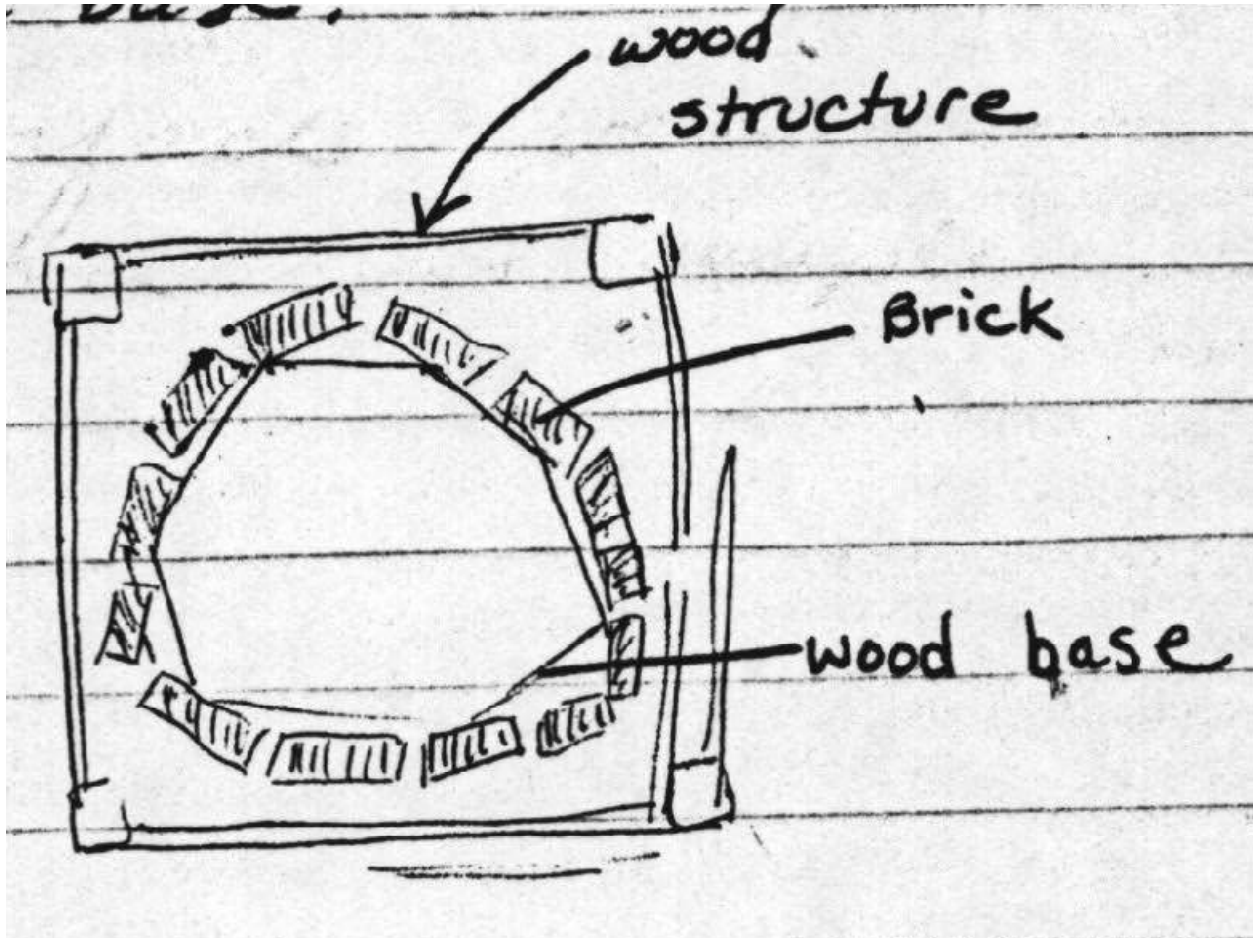 base.
wood
structure
Brick
wood base